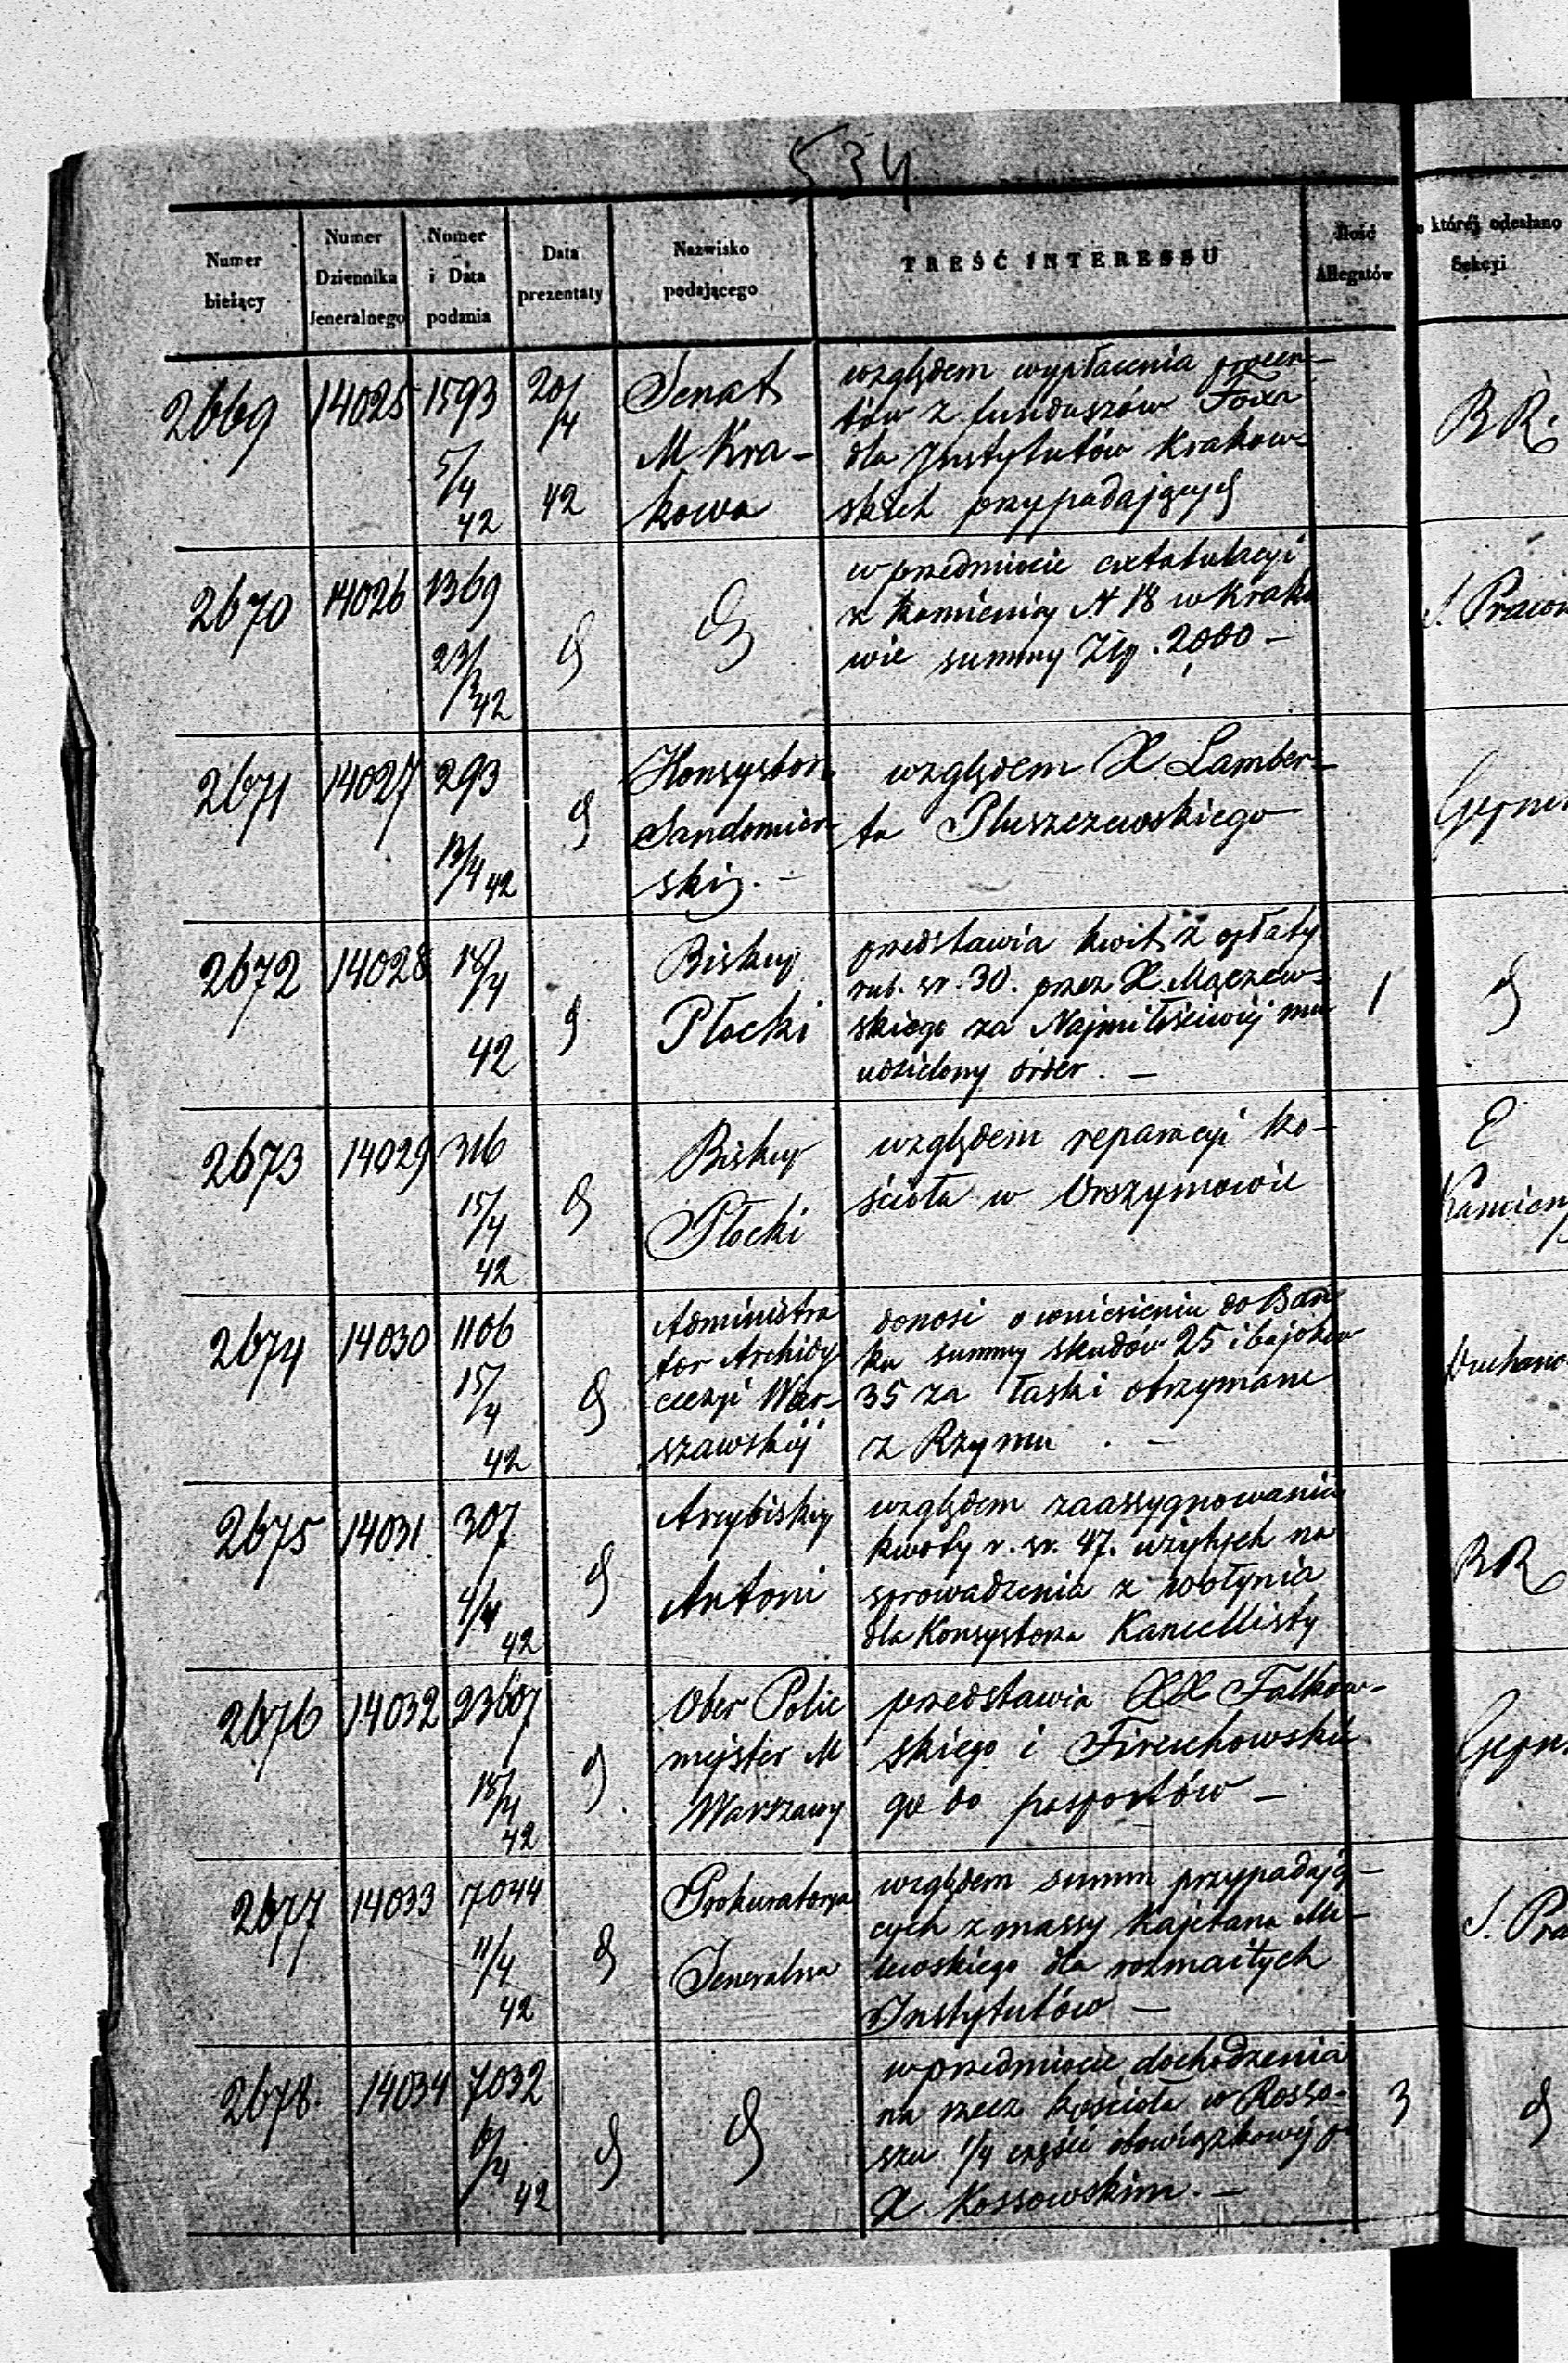 534
Numer bieżący
Numer Dziennika Jeneralnego
Numer i Data podania
Data prezentaty
Nazwisko podającego
TREŚĆ INTERESSU
Ilość Allegatów
której odesłano Sekcyi
2669 14025 1593 5/4 42 20/4 42
Senat
M Kra-
kowa
względem wypłacenia procen-
tów z funduszów Foxa
dla Instytutów Krakow-
skich przypadających
BR.
2670 14026 1369 42
d
d
w przedmiocie extabulacyi
z kamienicy N 18 w Krako
wie summy Złp. 2,000 –
2671 14027 293 42
d
Konsystorz
Sandomier-
ski. –
względem X Lamber-
ta Pluszczewskiego
2672 14028 18/4 42
d
Biskup
Płocki
przedstawia kwit z opłaty
rub. sr. 30. przez X Mączew-
skiego za Najmiłościwiej mu
udzielony order. –
1
d
2673 14029 316 15/4 42
d
Biskup
Płocki
względem reparacyi ko-
ścioła w Orszymowie
2674 14030 1106 15/4 42
d
Administra
tor Archidy
ecezyi War-
szawskiéj
donosi o wniesieniu do Ban
ku summy skudów 25 i bajoków
35 za łaski otrzymane
z Rzymu . –
2675 14031 307 4/4 42
d
Arcybiskup
Antoni
względem zaassygnowania
kwoty r. sr. 47. użytych na
sprowadzenia z Wołynia
dla Konsystorza Kancellisty
BR
2676 14032 23607 18/4 42
d
Ober Polic
mejster M
Warszawy
przedstawia XX Falkow-
skiego i
go do pasportów –
2677 14033 7044 11/4 42
d
Prokuratorya
Jeneralna
względem summ przypadają-
cych z massy Kajetana Mi-
lewskiego dla rozmaitych
Instytutów –
2678. 14034 7032 42
d
d
w przedmiocie dochodzenia
na rzecz kościoła w Rosso-
szu 1/4 części obowiązkowéj po
X. Kossowskim. –
3
d